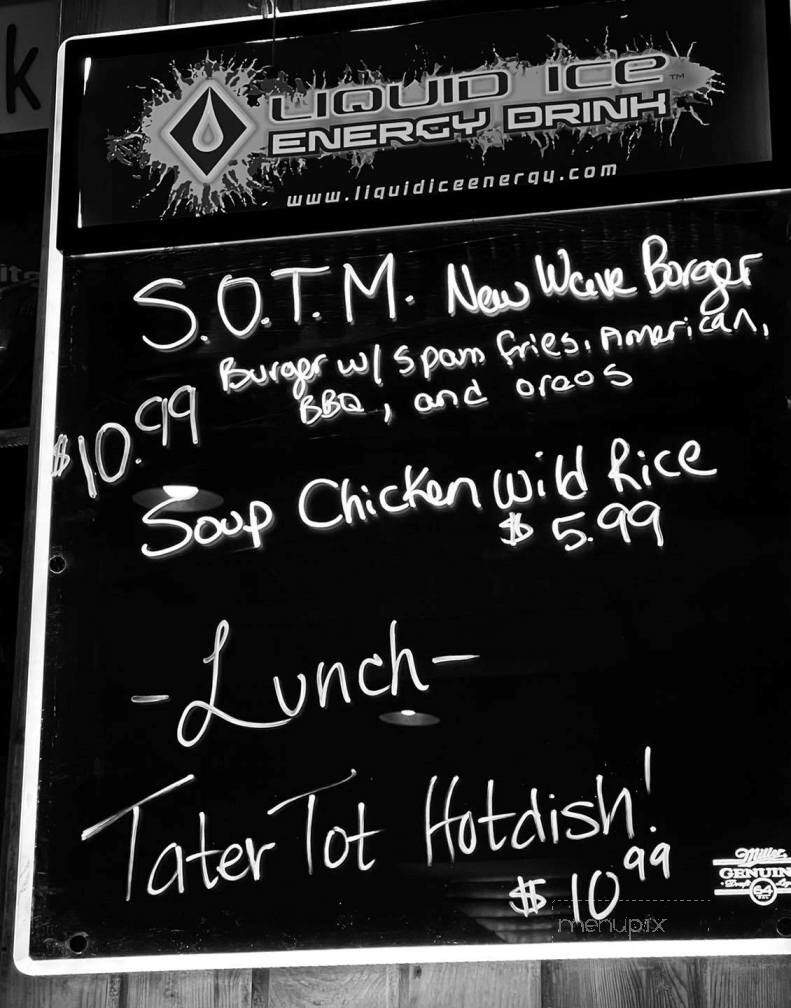 k
LIQUID ICE™
ENERGY DRINK
www.liquidiceenergy.com
S.O.T.M. New Wave Burger
Burger w/ Spam fries, American,
BBQ, and oreos
$10.99
Soup Chicken Wild Rice
$5.99
-Lunch-
Tater Tot Hotdish!
$10.99
Miller
GENUIN
Draft
64
menupix